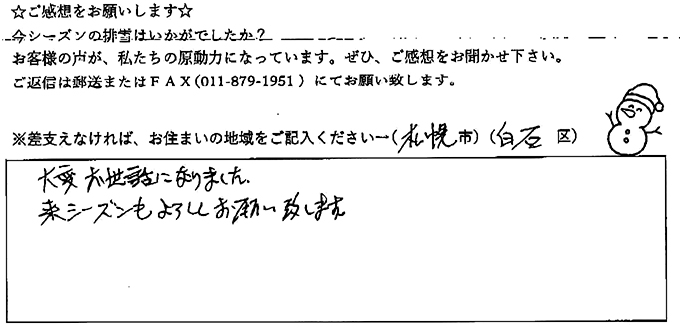 ☆ご感想をお願いします☆
今シーズンの排雪はいかがでしたか？
お客様の声が、私たちの原動力になっています。ぜひ、ご感想をお聞かせ下さい。
ご返信は郵送またはＦＡＸ(011-879-1951）にてお願い致します。
※差支えなければ、お住まいの地域をご記入ください→(札幌市)(白石 区)
大変お世話になりました。
来シーズンもよろしくお願い致します